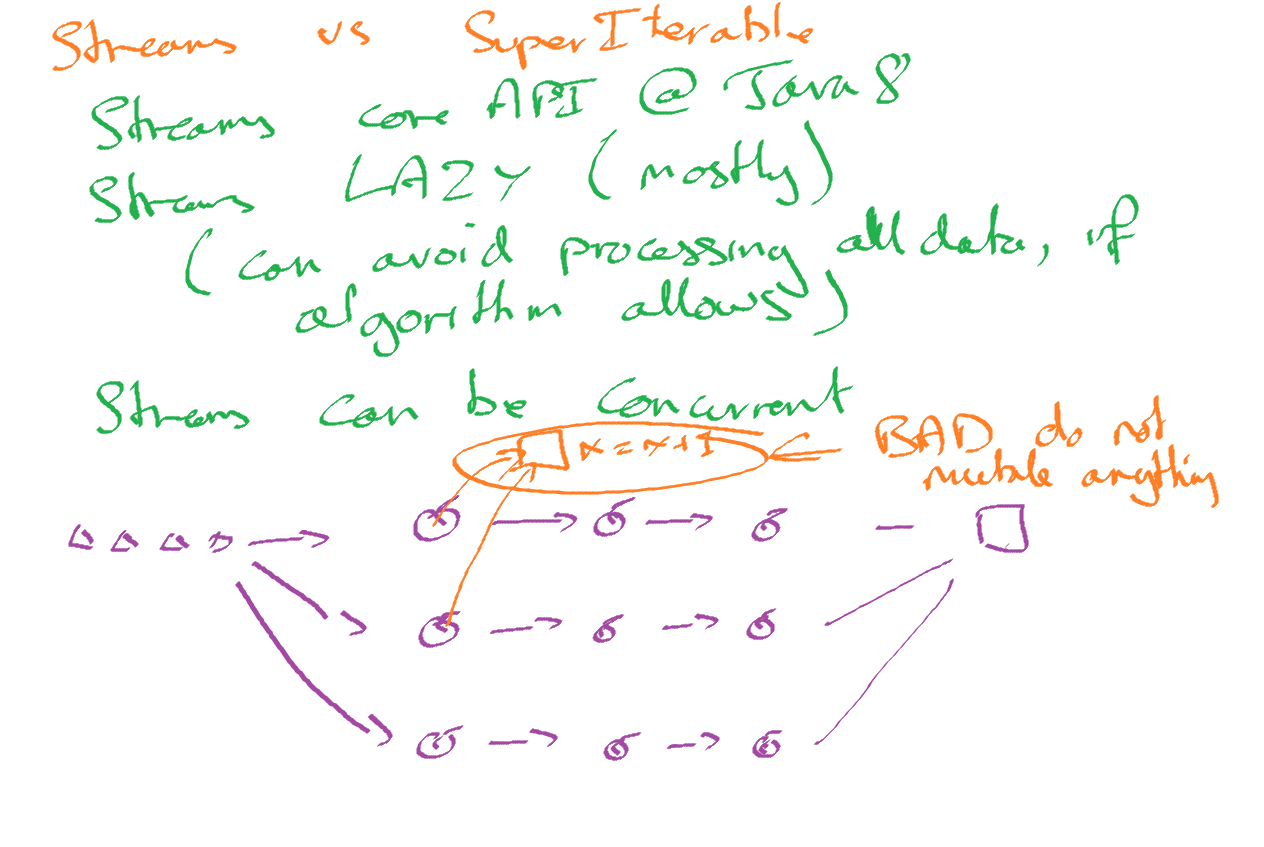 Streams vs SuperIterable
Streams core API @ Java 8
Streams LAZY (mostly)
(can avoid processing all data, if
algorithm allows)
Streams can be concurrent
x = x + 1
BAD do not
mutate anything